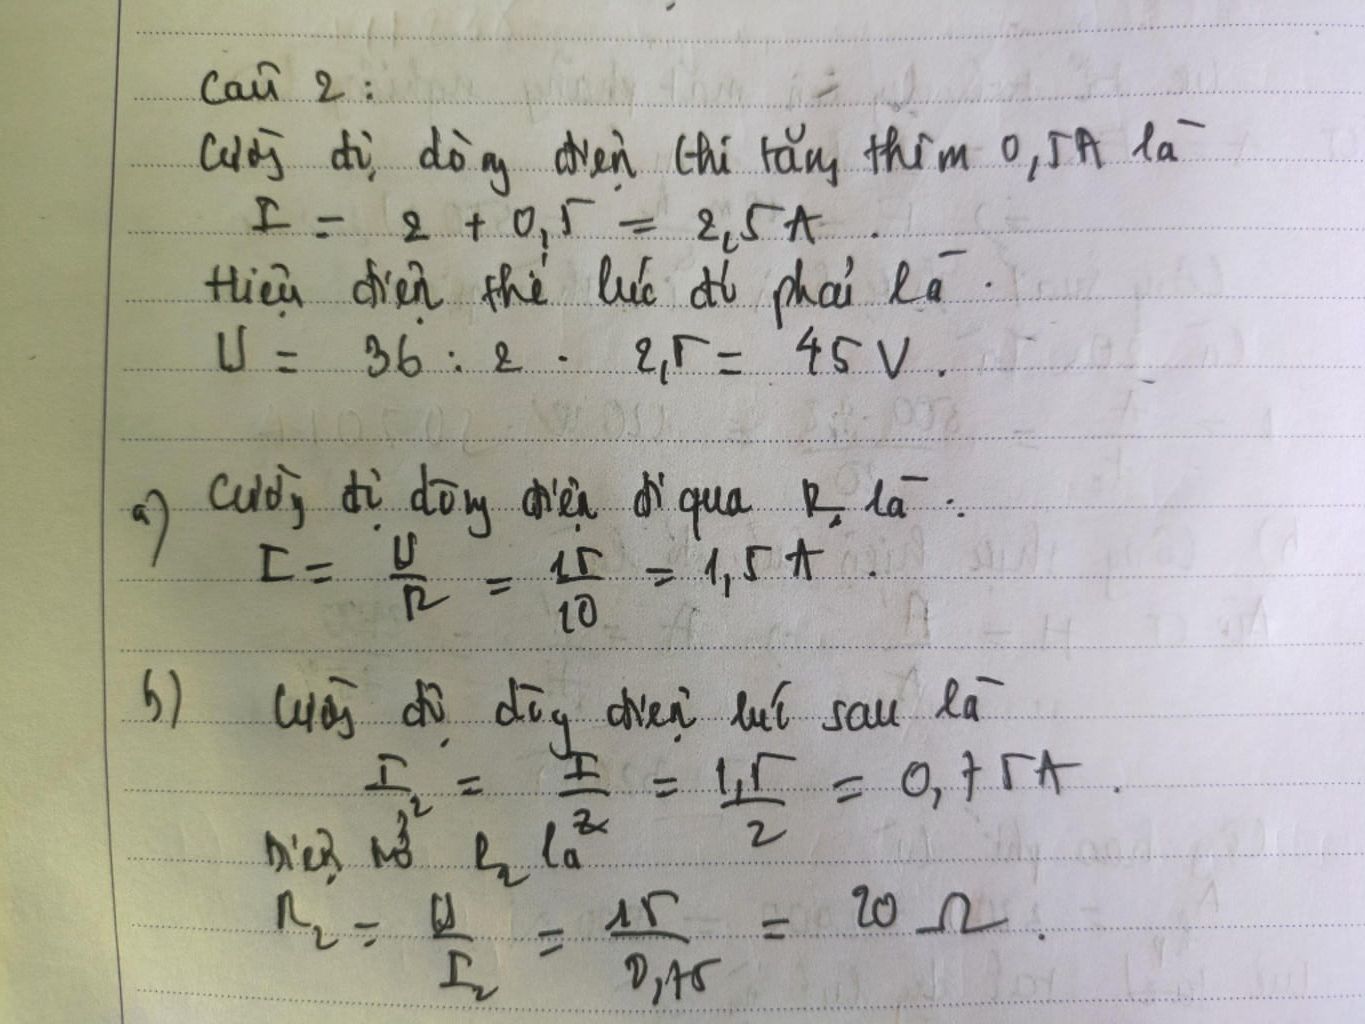 Câu 2 :
Cường độ dòng điện khi tăng thêm 0,5A là
I = 2 + 0,5 = 2,5A .
Hiệu điện thế lúc đó phải là .
U = 36 : 2 . 2,5 = 45 V .
a) Cường độ dòng điện đi qua R₁ là :.
I = U/R = 15/10 = 1,5 A .
b) Cường độ dòng điện lúc sau là
I₂ = I/2 = 1,5/2 = 0,75A .
Điện trở R₂ là
R₂ = U/I₂ = 15/0,75 = 20 Ω .